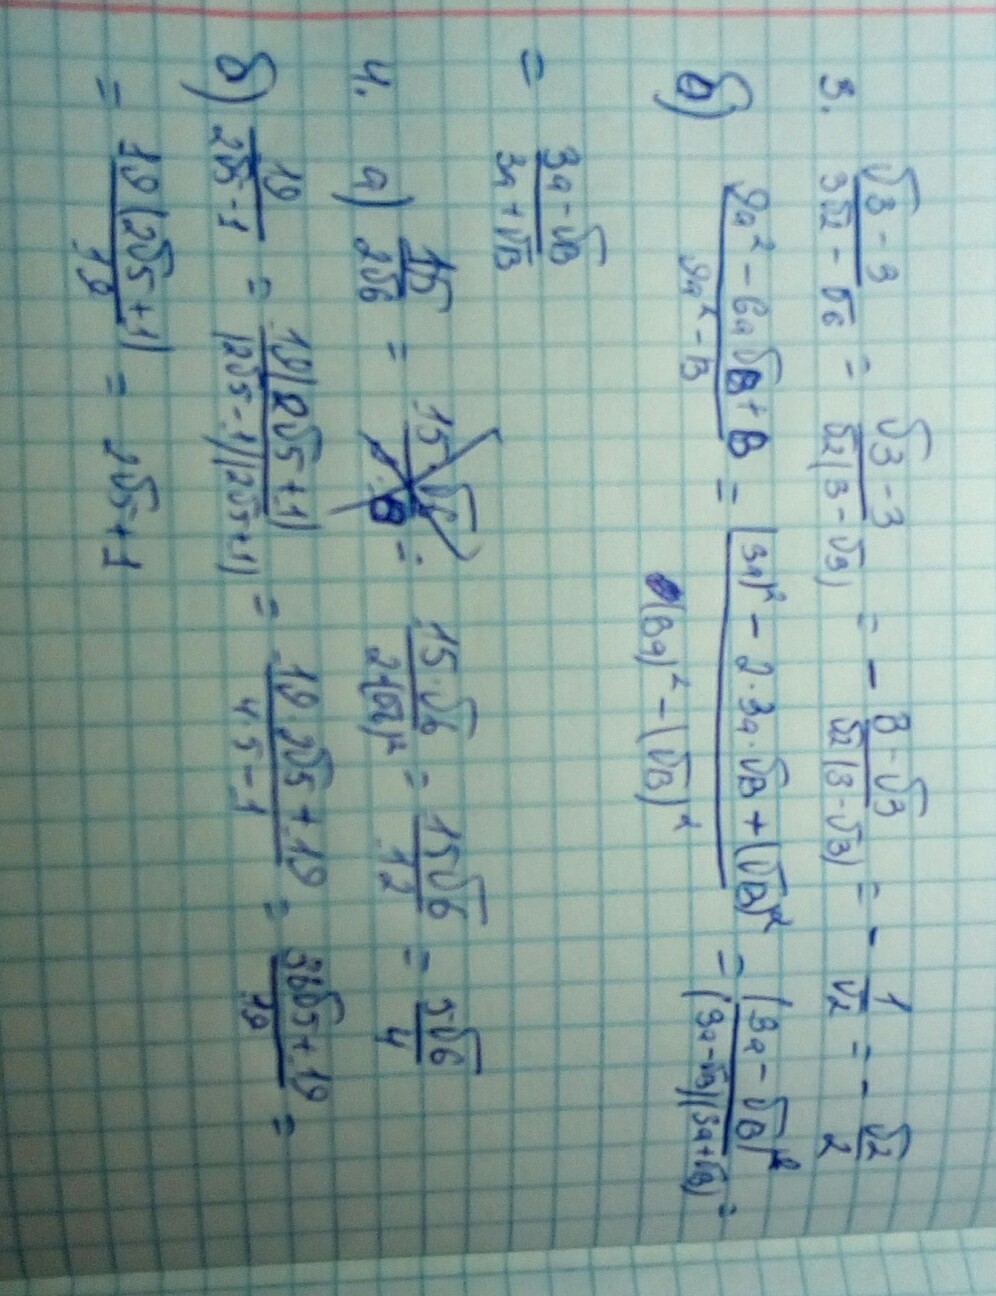 3. (√3 - 3)/(3√2 - √6) = (√3 - 3)/(√2(3 - √3)) = - (3 - √3)/(√2(3 - √3)) = - 1/√2 = - √2/2
б) (9a² - 6a√B + B)/(9a² - B) = ((3a)² - 2·3a·√B + (√B)²)/((3a)² - (√B)²) = (3a - √B)²/((3a - √B)(3a + √B)) =
= (3a - √B)/(3a + √B)
4. а) 15/(2√6) = 15·√6/(2·(√6)²) = 15√6/12 = 5√6/4
б) 19/(2√5 - 1) = 19(2√5 + 1)/((2√5 - 1)(2√5 + 1)) = (19·2√5 + 19)/(4·5 - 1) = (38√5 + 19)/19 =
= 19(2√5 + 1)/19 = 2√5 + 1